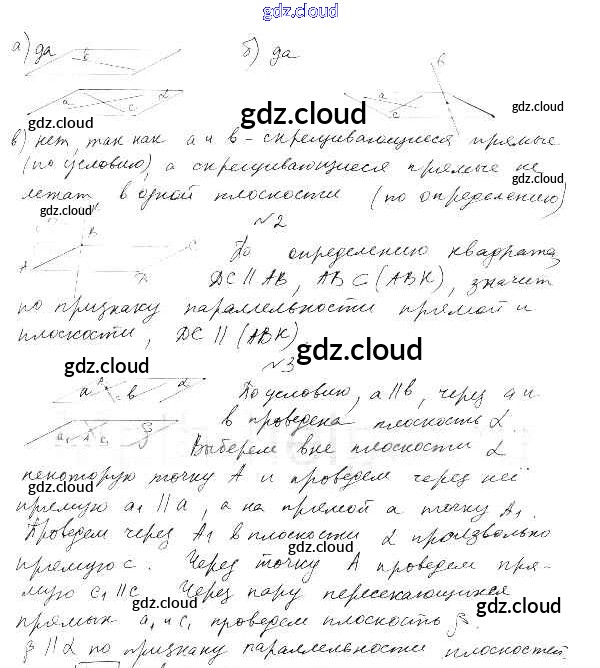 gdz.cloud
а) да б) да
gdz.cloud
в) нет, так как а и в - скрещивающиеся прямые
(по условию), а скрещивающиеся прямые не
лежат в одной плоскости (по определению)
№2
По определению квадрата,
DC || AB, AB ⊂ (ABK), значит
по признаку параллельности прямой и
плоскости, DC || (ABK)
gdz.cloud
№3
По условию, а || в, через а и
в проведена плоскость α.
Выберем вне плоскости α
некоторую точку А и проведем через неё
прямую а₁ || а, а на прямой а точку А₁.
Проведем через А₁ в плоскости α произвольно
прямую с. Через точку А проведем пря-
мую с₁ || с. Через пару пересекающихся
прямых а₁ и с₁ проведем плоскость β.
β || α по признаку параллельности плоскостей